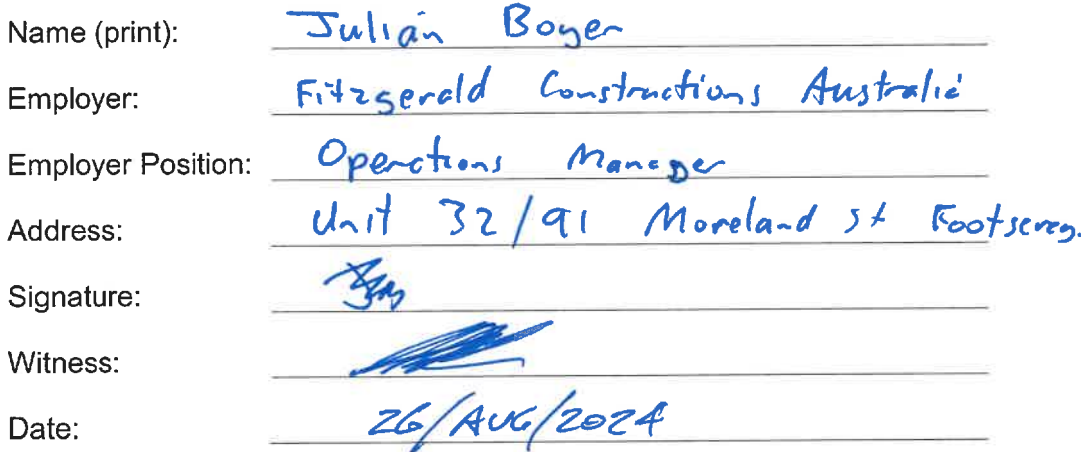 Name (print): Julian Boyer
Employer: Fitzgerald Constructions Australia
Employer Position: Operations Manager
Address: Unit 32/91 Moreland st Footscray.
Signature:
Witness:
Date: 26/AUG/2024